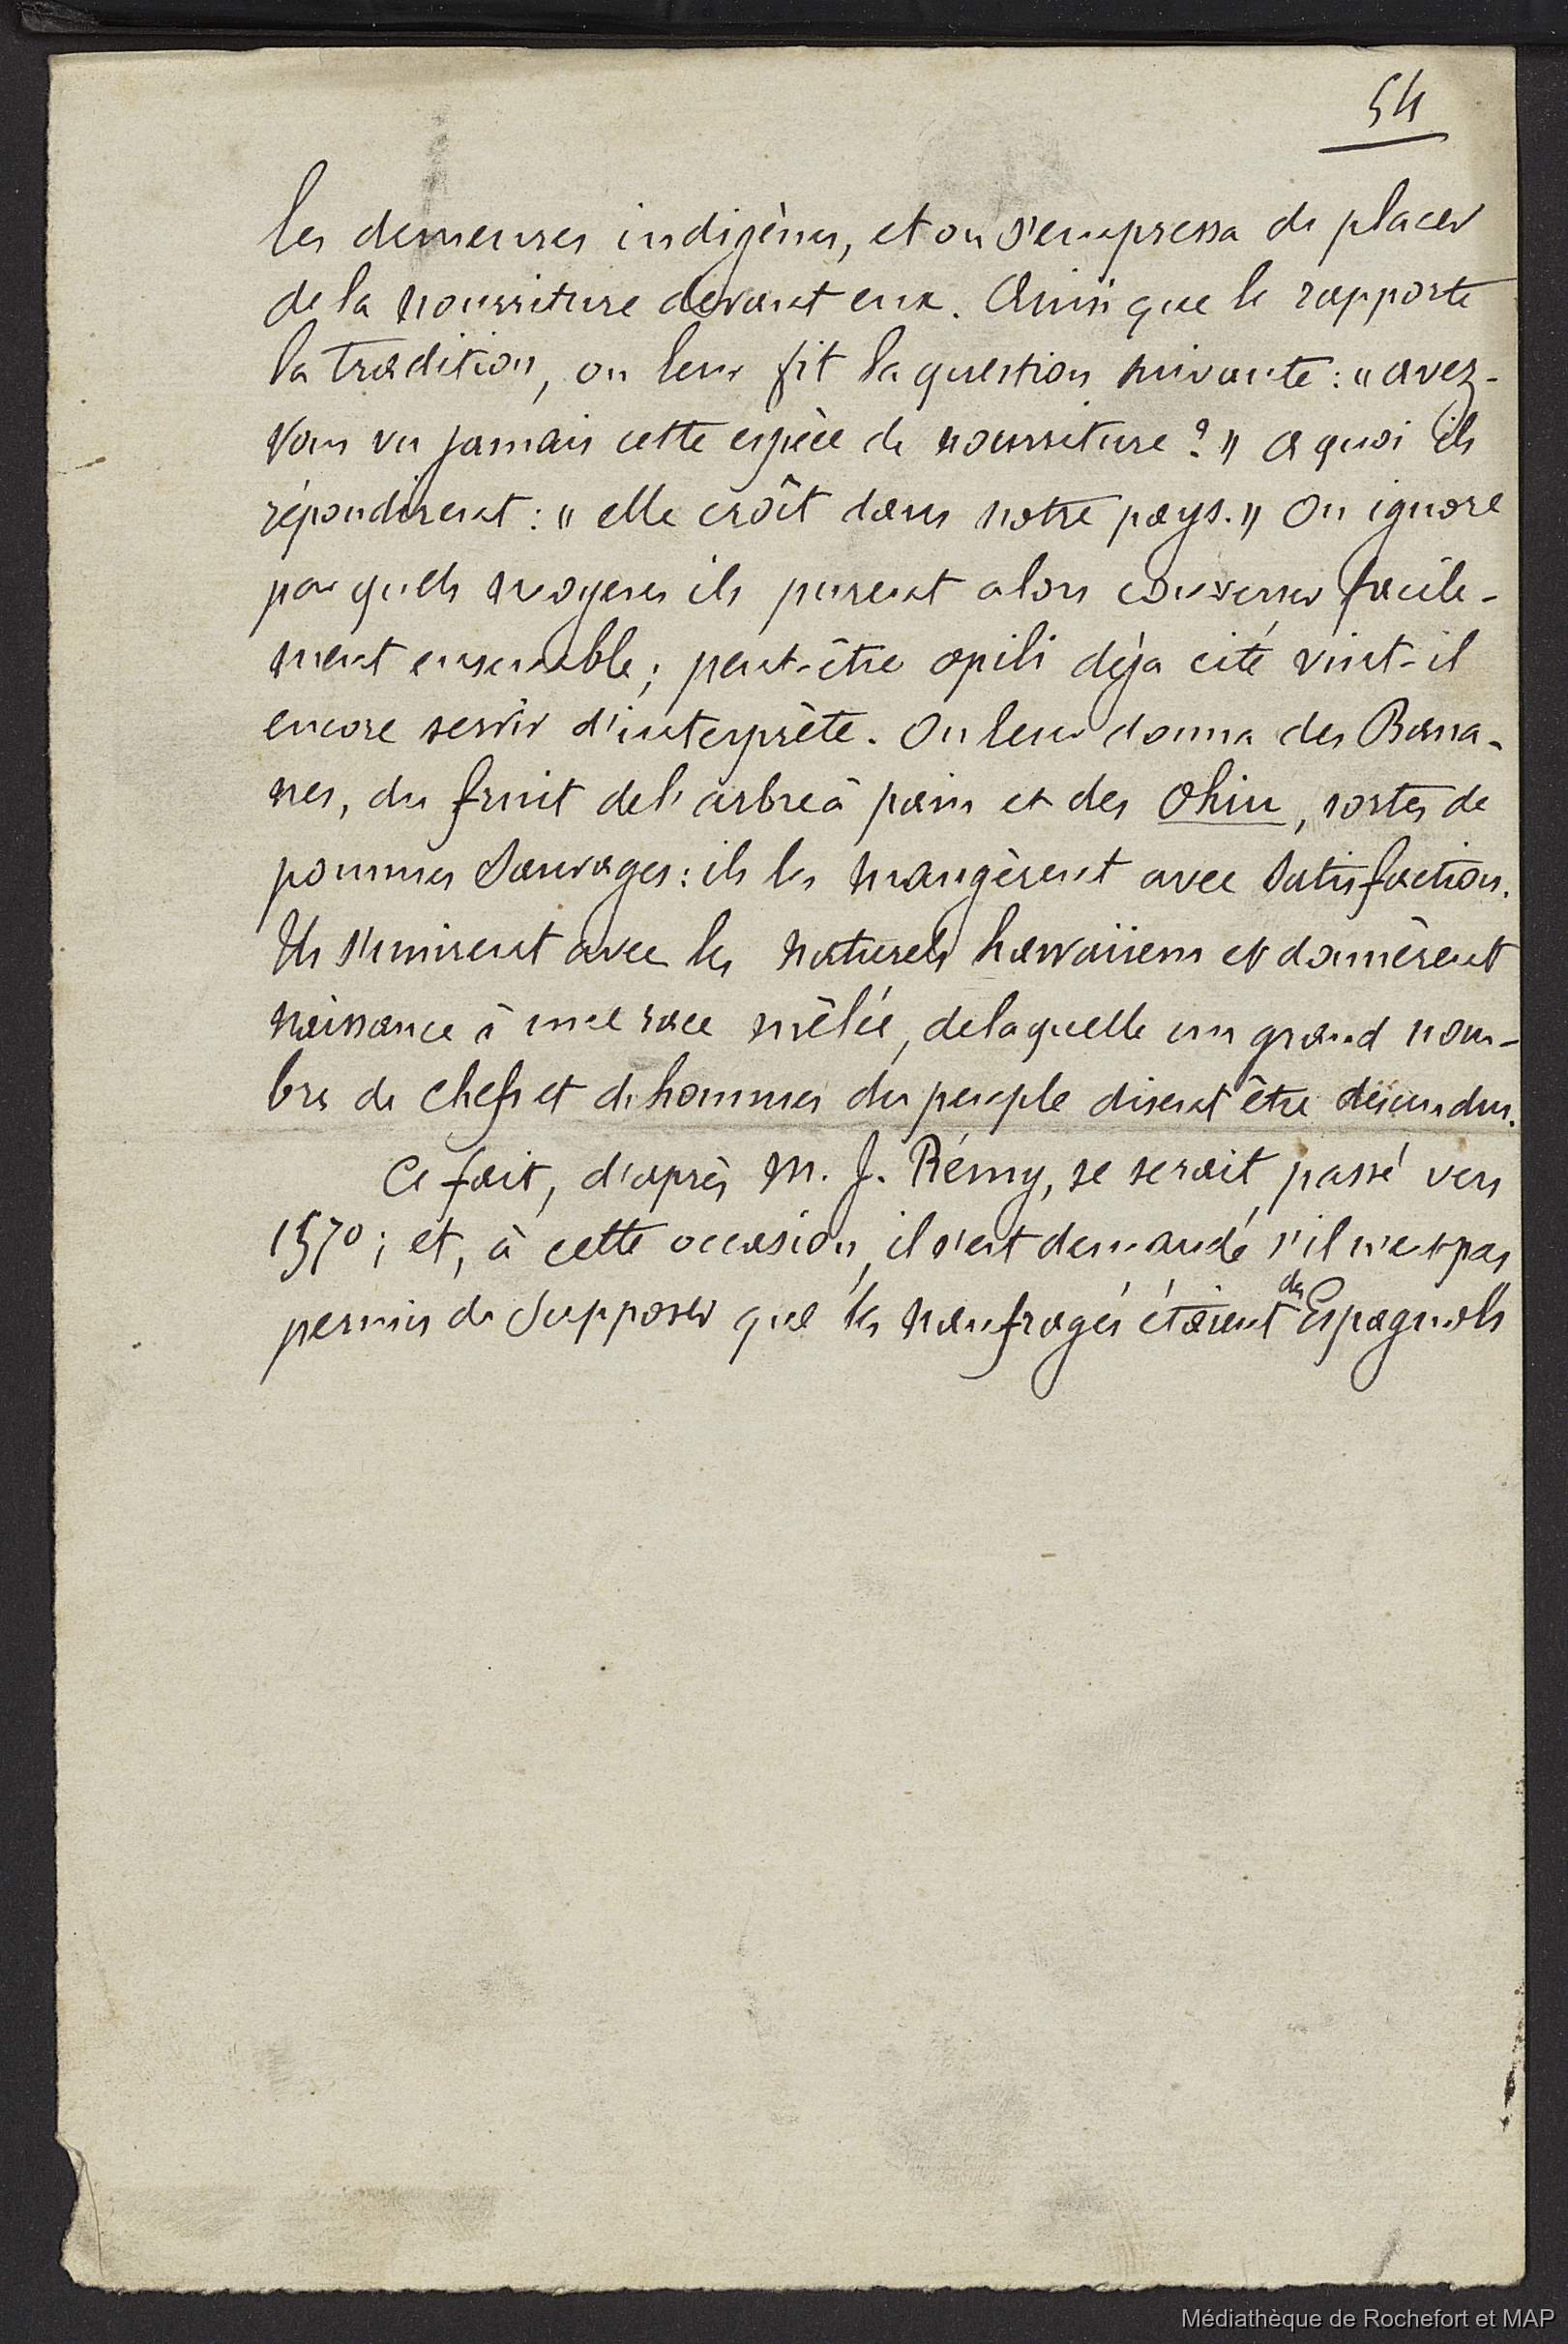 54
les demeures indigènes, et on s'empressa de placer
de la nourriture devant eux. Ainsi que le rapporte
la tradition, on leur fit la question suivante : "avez-
vous vu jamais cette espèce de nourriture ?" a quoi ils
répondirent : "elle croît dans notre pays." On ignore
par quels moyens ils purent alors converser facile-
ment ensemble ; peut-être opili déja cité vint-il
encore servir d'interprète. On leur donna des Bana-
nes, du fruit de l'arbre à pain et des ohiu, sortes de
pommes Sauvages : ils les mangèrent avec Satisfaction.
Ils s'unirent avec les naturels hawaïiens et donnèrent
naissance à une race mêlée, de laquelle un grand nom-
bre de chefs et d'hommes du peuple disent être descendus.
Ce fait, d'après M. J. Rémy, se serait passé vers
1570 ; et, à cette occasion, il s'est demandé s'il n'est pas
permis de Supposer que les naufragés étaient des Espagnols
Médiathèque de Rochefort et MAP